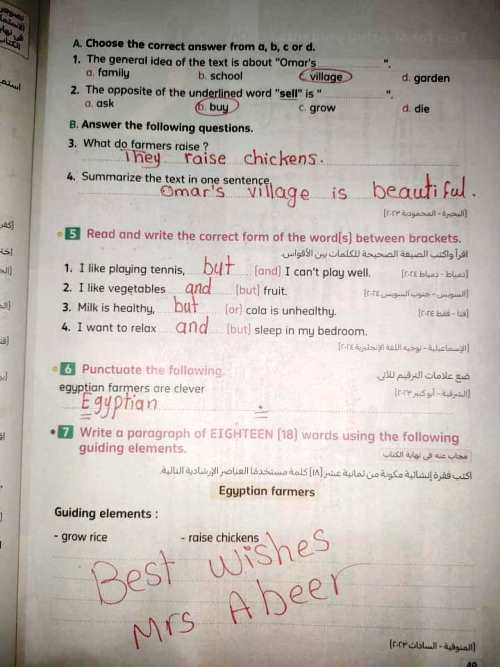 A. Choose the correct answer from a, b, c or d.
1. The general idea of the text is about "Omar's ............ ".
a. family b. school c. village d. garden
2. The opposite of the underlined word "sell" is " ............ ".
a. ask b. buy c. grow d. die
B. Answer the following questions.
3. What do farmers raise ?
They raise chickens.
4. Summarize the text in one sentence.
Omar's village is beautiful.
(البحيرة - المحمودية ٢٠٢٣)
5 Read and write the correct form of the word(s) between brackets.
اقرأ واكتب الصيغة الصحيحة للكلمات بين الأقواس.
1. I like playing tennis, but (and) I can't play well. (دمياط - دمياط ٢٠٢٤)
2. I like vegetables and (but) fruit. (السويس - جنوب السويس ٢٠٢٤)
3. Milk is healthy, but (or) cola is unhealthy. (قنا - قفط ٢٠٢٤)
4. I want to relax and (but) sleep in my bedroom.
(الإسماعيلية - توجيه اللغة الإنجليزية ٢٠٢٤)
6 Punctuate the following. ضع علامات الترقيم للآتى.
egyptian farmers are clever (الشرقية - أبو كبير ٢٠٢٣)
Egyptian .
7 Write a paragraph of EIGHTEEN (18) words using the following
guiding elements. مجاب عنه فى نهاية الكتاب
اكتب فقرة إنشائية مكونة من ثمانية عشر (١٨) كلمة مستخدمًا العناصر الإرشادية التالية.
Egyptian farmers
Guiding elements :
- grow rice - raise chickens
Best wishes
Mrs Abeer
(المنوفية - السادات ٢٠٢٣)
49